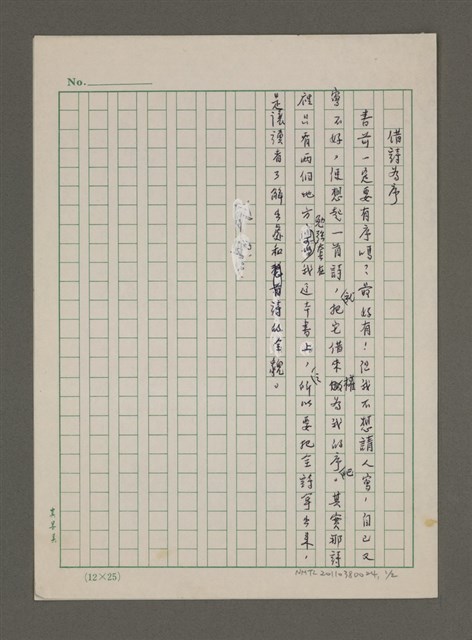 No.
借詩為序
書前一定要有序嗎？最好有！但我不想請人寫，自己又
寫不好，便想起一首詩，就把它借來權為我的序吧。其實那詩
裡只有兩個地方勉強套在我這本書上，所以要把全詩寫出來，
是讓讀者了解出處和那首詩的全貌。
(12×25)
NMTL20110380004, 1/2